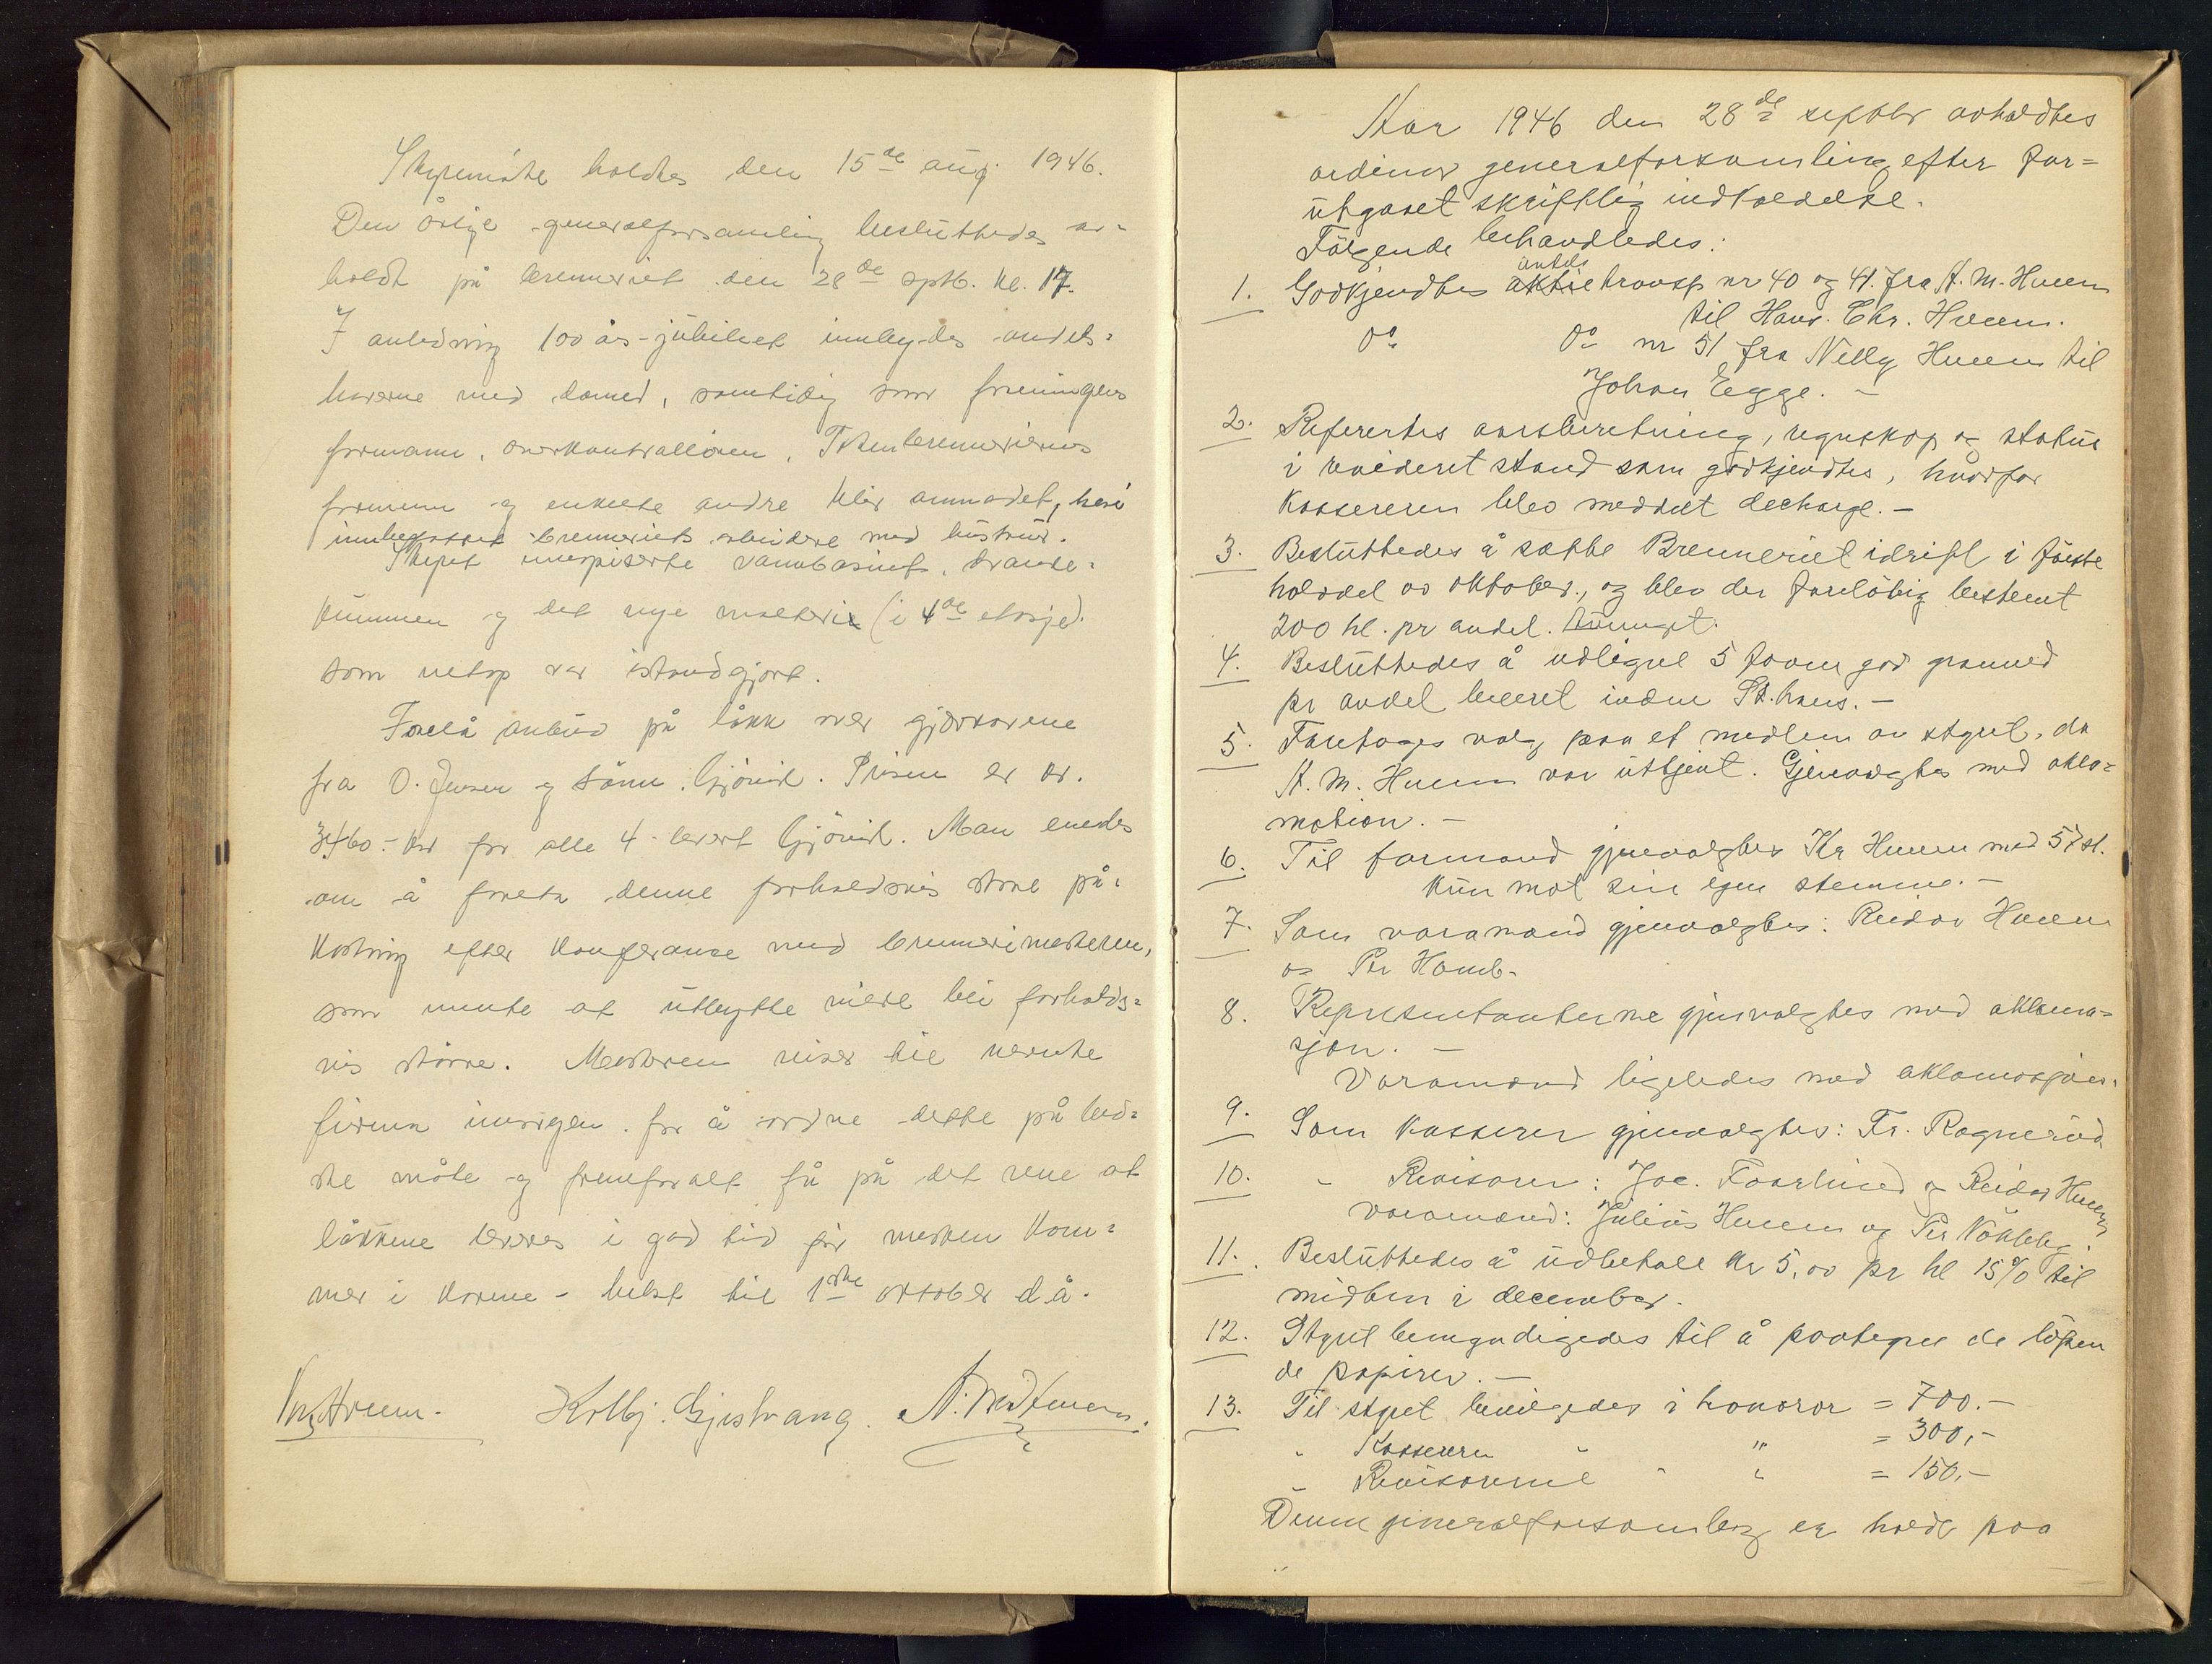 Styremöte holdtes den 15de aug. 1946.
Den årlige generalforsamling besluttedes av-
holdt på brenneriet den 28de sptb. kl. 17.
I anledning 100 års-jubileet innbydes andels-
haverne med damer, samtidig som foreningens
formann, overkontrollören, Totenbrenneriernes
formenn og enkelte andre blir anmodet, heri
innbefattet brenneriets arbeidere med hustruer.
Styret inspiserte vannbasinet, dranke-
kummen og det nye malteri (i 4de etasje).
som netop var istandgjort.
Forelå anbud på låkk over gjærkarene
fra O. Jensen og Sönn, Gjövik. Prisen er kr.
3460.- kr for alle 4 levert Gjövik. Man enedes
om å foreta denne forholdsvis store på-
kostning efter konferanse med brennerimesteren,
som mente at utbyttet vilde bli forholds-
vis större. Mesteren reiser til nevnte
firma imorgen for å ordne dette på bed-
ste måte og fremforalt få på det rene at
låkkene leveres i god tid för mesken kom-
mer i karene - helst til 1ste oktober d.å.
Kr. Hveem. Kolbj. Gjestvang. A. M. Hveem.
Aar 1946 den 28de septbr avholdtes
ordinær generalforsamling efter for-
utgaaet skriftlig indkaldelse.
Fölgende behandledes:
andels
1. Godkjendtes aktietransp nr 40 og 41. fra A. M. Hveem
til Hans Chr. Hveem.
Do Do nr 51 fra Nelly Hveem til
Johan Egge. -
2. Refererte aarsberetning, regnskap og status
i revideret stand som godkjendtes, hvorfor
kassereren blev meddelt decharge. -
3. Besluttedes å sætte Brenneriet idrift i förste
halvdel av oktober., og blev der foreløbig bestemt
200 hl. pr andel.
4. Besluttedes å udligne 5 favner god granved
pr andel leveret inden St. hans. -
5. Foretages valg paa et medlem av styret, da
A. M. Hveem var uttjent. Gjenvalgtes med akla-
mation. -
6. Til formand gjenvalgtes Kr Hveem med 57 st.
kun mot sin egen stemme. -
7. Som varamænd gjenvalgtes: Reidar Hveem
og Per Homb.
8. Representanterne gjenvalgtes med aklama-
sjon. -
Varamænd ligeledes med aklamasjon.
9. Som kasserer gjenvalgtes: Fr. Rognerud
10. " Revisorer: Joc. Faarlund og Reidar Hveem
varamænd: Julius Hveem og Per Nökleby.
11. Besluttedes å udbetale kr 5,00 pr hl 15% til
midten i december.
12. Styret bemyndigedes til å paategne de löpen
de papirer. -
13. Til styret bevilgedes i honorar = 700.-
" Kassereren " " = 300,-
" Revisorerne " " = 150,-
Denne generalforsamling er holdt paa